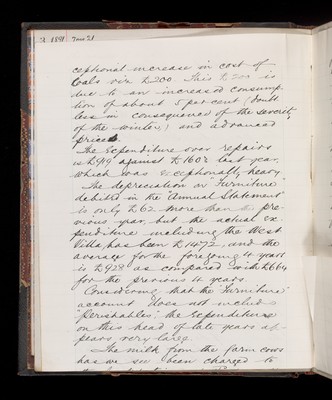 1891 June 21
ceptional increase in cost of
Coals viz £200. This £200 is
due to an increased consump-
tion of about 5 per cent (doubt
less in consequence of the severity
of the winter) and advanced
prices.
The Expenditure over repairs
is £919 against £1602 last year,
which was exceptionally heavy.
The depreciation on "Furniture"
debited in the Annual Statement
is only £62 more than a pre-
vious year, but the actual ex-
penditure including the West
Villa has been £1472, and the
average for the foregoing 4 years
is £928 as compared with £664
for the previous 10 years.
Considering that the "Furniture"
account does not include
"perishables", the Expenditure
on this head of late years ap-
pears very large.
The milk from the farm cows
has we see been charged to